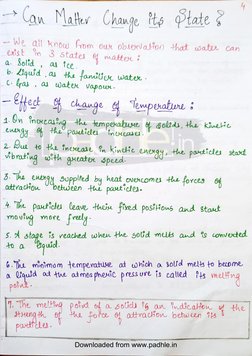 4
→ Can Matter Change its State ?
- We all know from our observation that water can
exist in 3 states of matter :
a. Solid, as ice
b. Liquid, as the familier water.
c. Gas, as water vapour.
- Effect of change of Temperature :
1. On increasing the temperature of solids, the kinetic
energy of the particles increases.
2. Due to the increase in kinetic energy, the particles start
vibrating with greater speed.
3. The energy supplied by heat overcomes the forces of
attraction between the particles.
4. The particles leave their fixed positions and start
moving more freely.
5. A stage is reached when the solid melts and is converted
to a liquid.
6. The minimum temperature at which a solid melts to become
a liquid at the atmospheric pressure is called its melting
point.
7. The melting point of a solids is an indication of the
strength of the force of attraction between its
particles.
Downloaded from www.padhle.in